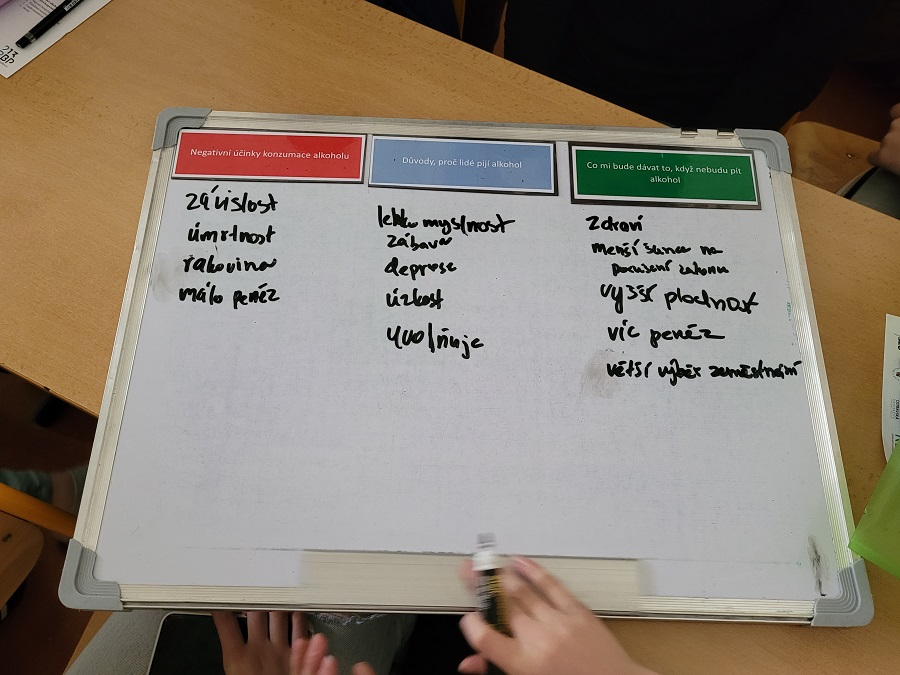 Negativní účinky konzumace alkoholu
závislost
úmrtnost
rakovina
málo peněz
Důvody, proč lidé pijí alkohol
lehkomyslnost
zábava
deprese
úzkost
uvolňuje
Co mi bude dávat to, když nebudu pít
alkohol
Zdraví
menší šance na
porušení zákona
vyšší plodnost
víc peněz
větší výběr zaměstnání